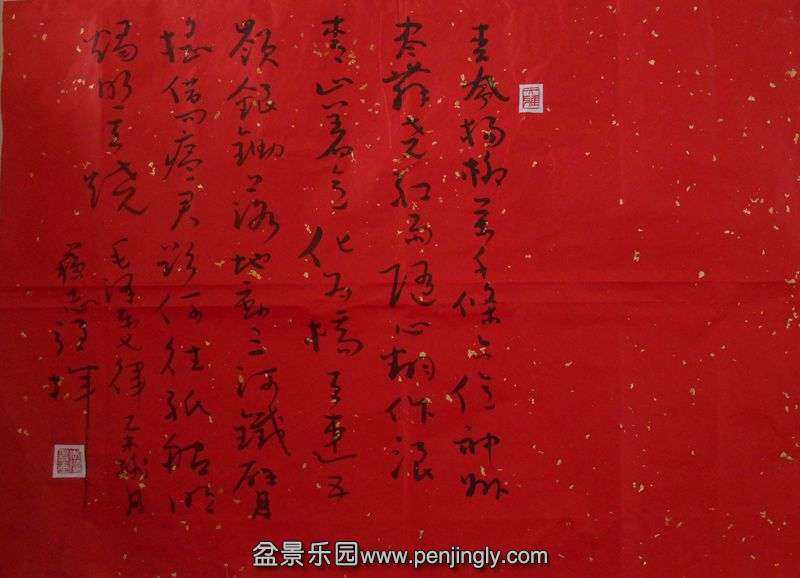 春风楊柳萬千條六億神州
尽舜尧红雨随心翻作浪
青山着意化为橋天連五
嶺銀鋤落地動三河鐵臂
摇借问瘟君欲何往紙船明
燭照天燒
毛泽东七律 乙未秋月
志强
盆景乐园www.penjingly.com